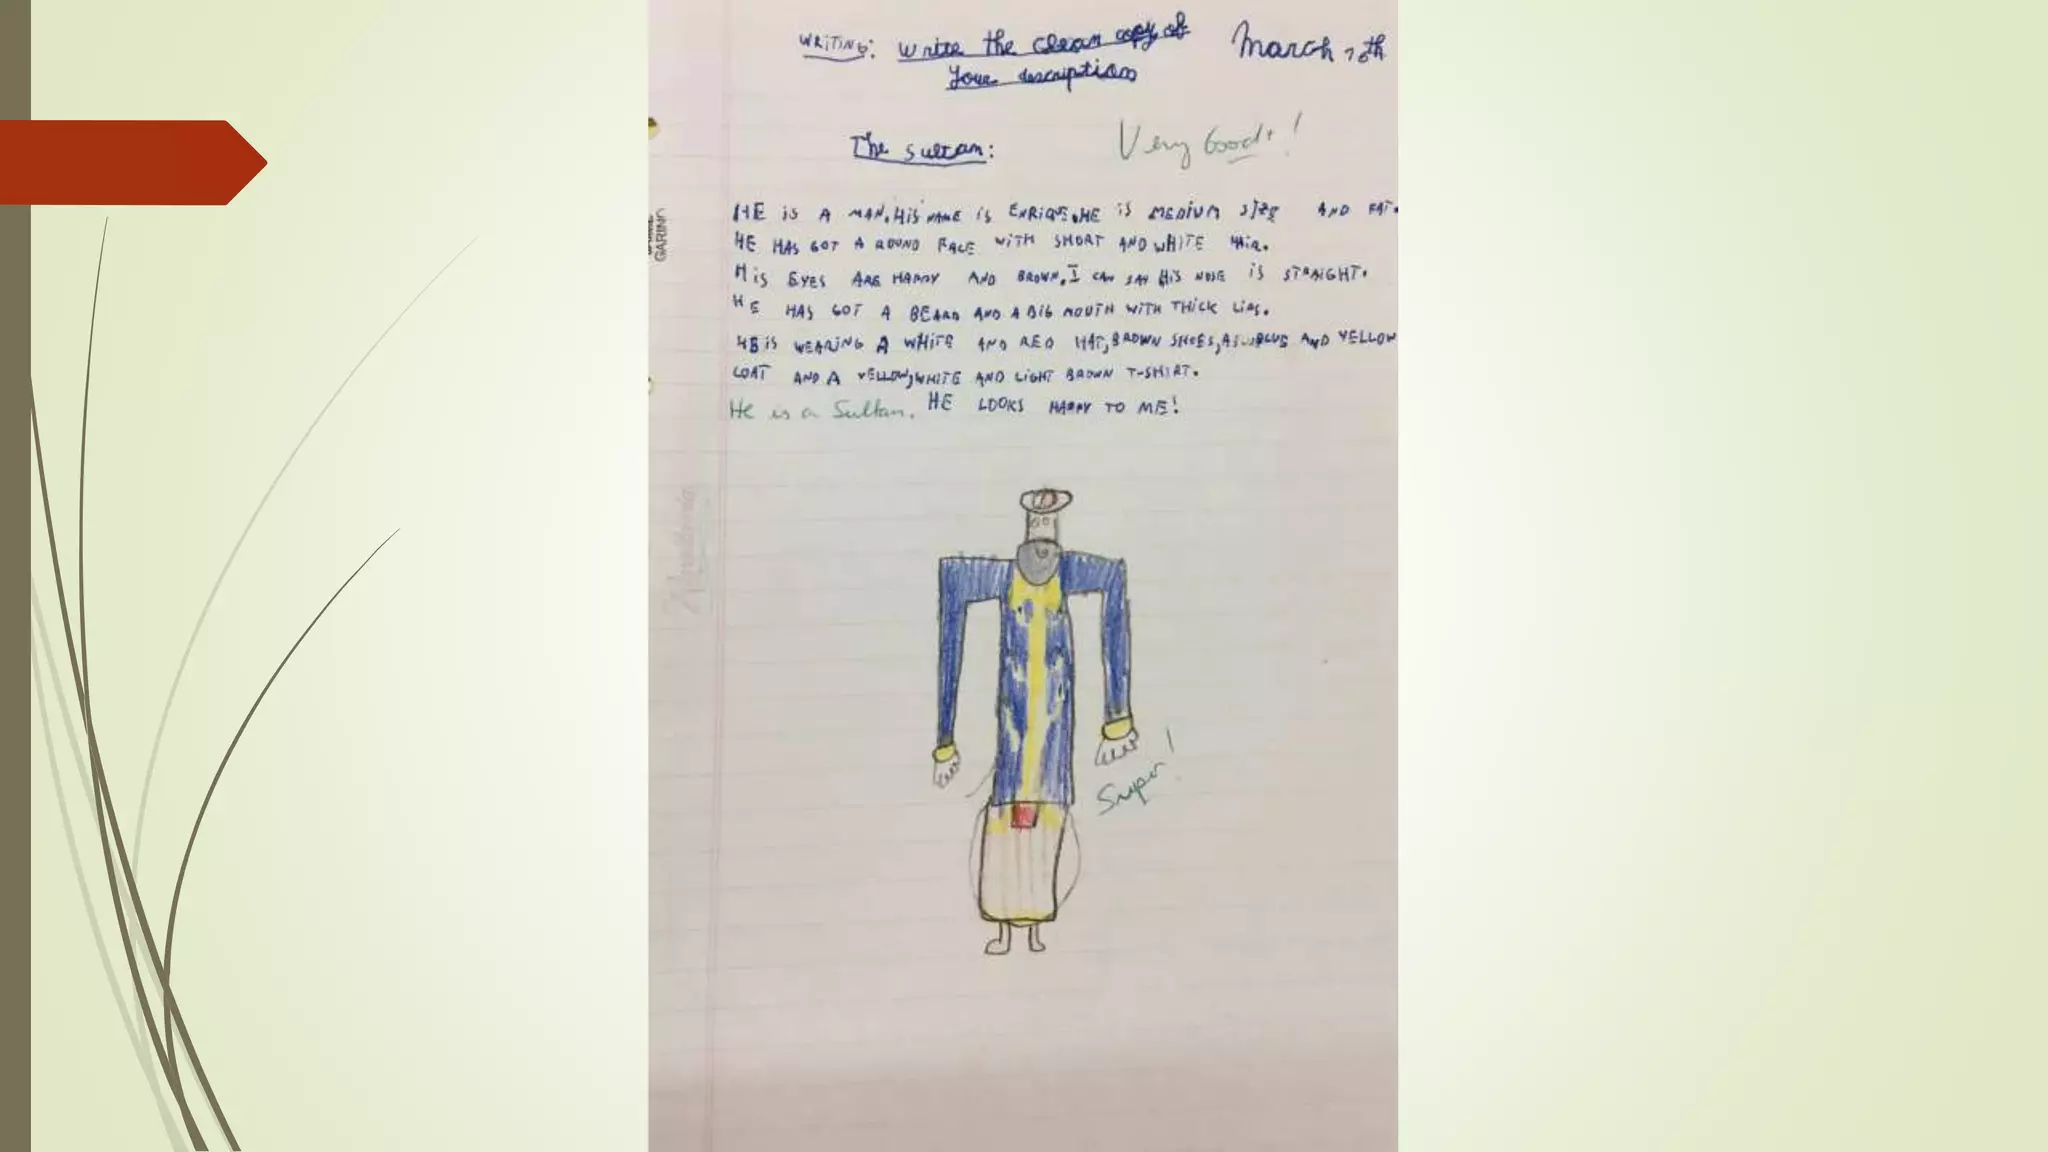 WRITING: Write the clean copy of
your description
March 7th
The sultan:
Very Good+!
HE is A MAN. His NAME is ENRiQUE. HE is MEDiUM SIZE AND FAT.
HE HAS GOT A ROUND FACE WiTH SHORT AND WHITE HAiR.
His EYES ARE HAPPY AND BROWN. I CAN SAY HiS NOSE iS STRAiGHT.
HE HAS GOT A BEARD AND A BIG MOUTH WiTH THiCK LiPS.
HE iS WEARiNG A WHiTE AND RED HAT, BROWN SHOES, A BLUE AND YELLOW
COAT AND A YELLOW, WHiTE AND LiGHT BROWN T-SHIRT.
He is a Sultan. HE LOOKS HAPPY TO ME!
Super!